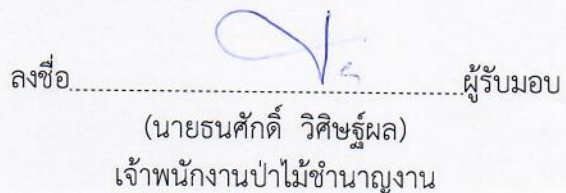 ลงชื่อ..........................................................ผู้รับมอบ
(นายธนศักดิ์ วิศิษฐ์ผล)
เจ้าพนักงานป่าไม้ชำนาญงาน